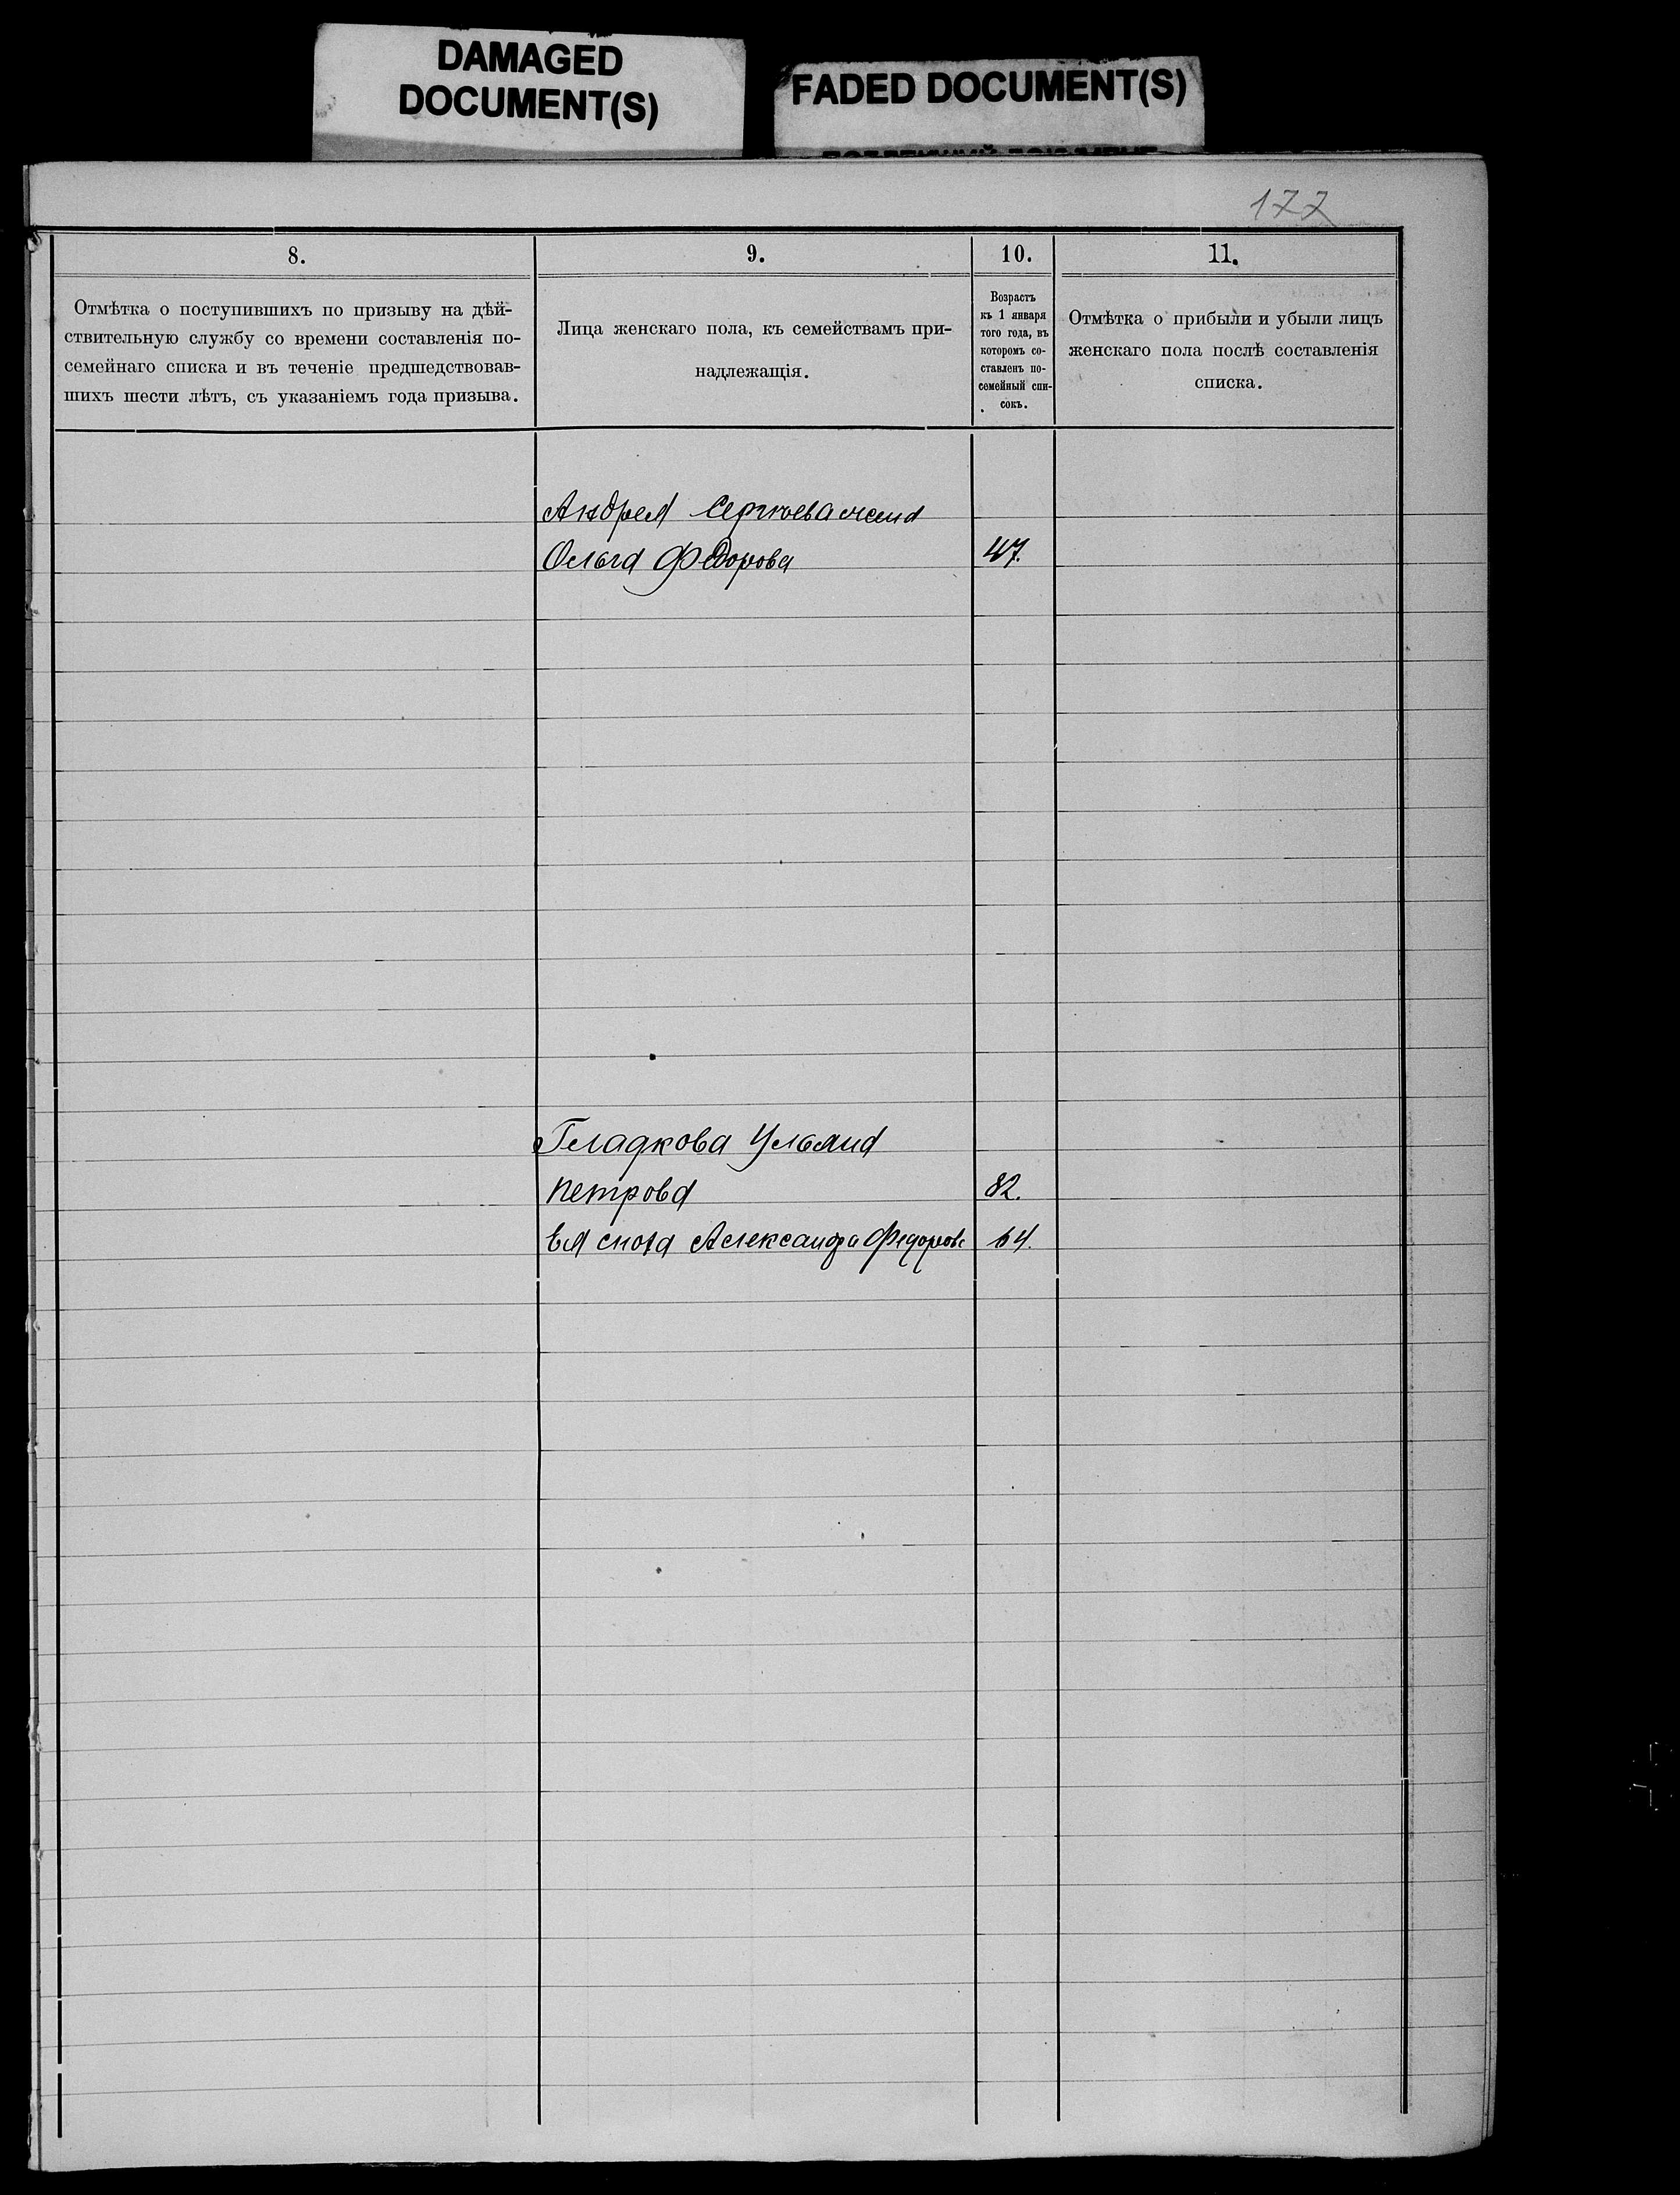 DAMAGED
DOCUMENT(S)
FADED DOCUMENT(S)
177
8.
9.
10.
11.
Отмѣтка о поступившихъ по призыву на дѣй-
ствительную службу со времени составленія по-
семейнаго списка и въ теченіе предшедствовав-
шихъ шести лѣтъ, съ указаніемъ года призыва.
Лица женскаго пола, къ семействамъ при-
надлежащія.
Возрастъ
къ 1 января
того года, въ
которомъ со-
ставленъ по-
семейный спи-
сокъ.
Отмѣтка о прибыли и убыли лицъ
женскаго пола послѣ составленія
списка.
Андрея Сергѣева жена
Ольга Федорова 47.
Гладкова Ульяна
Петрова 82.
Ея сноха Александра Федоров 64.